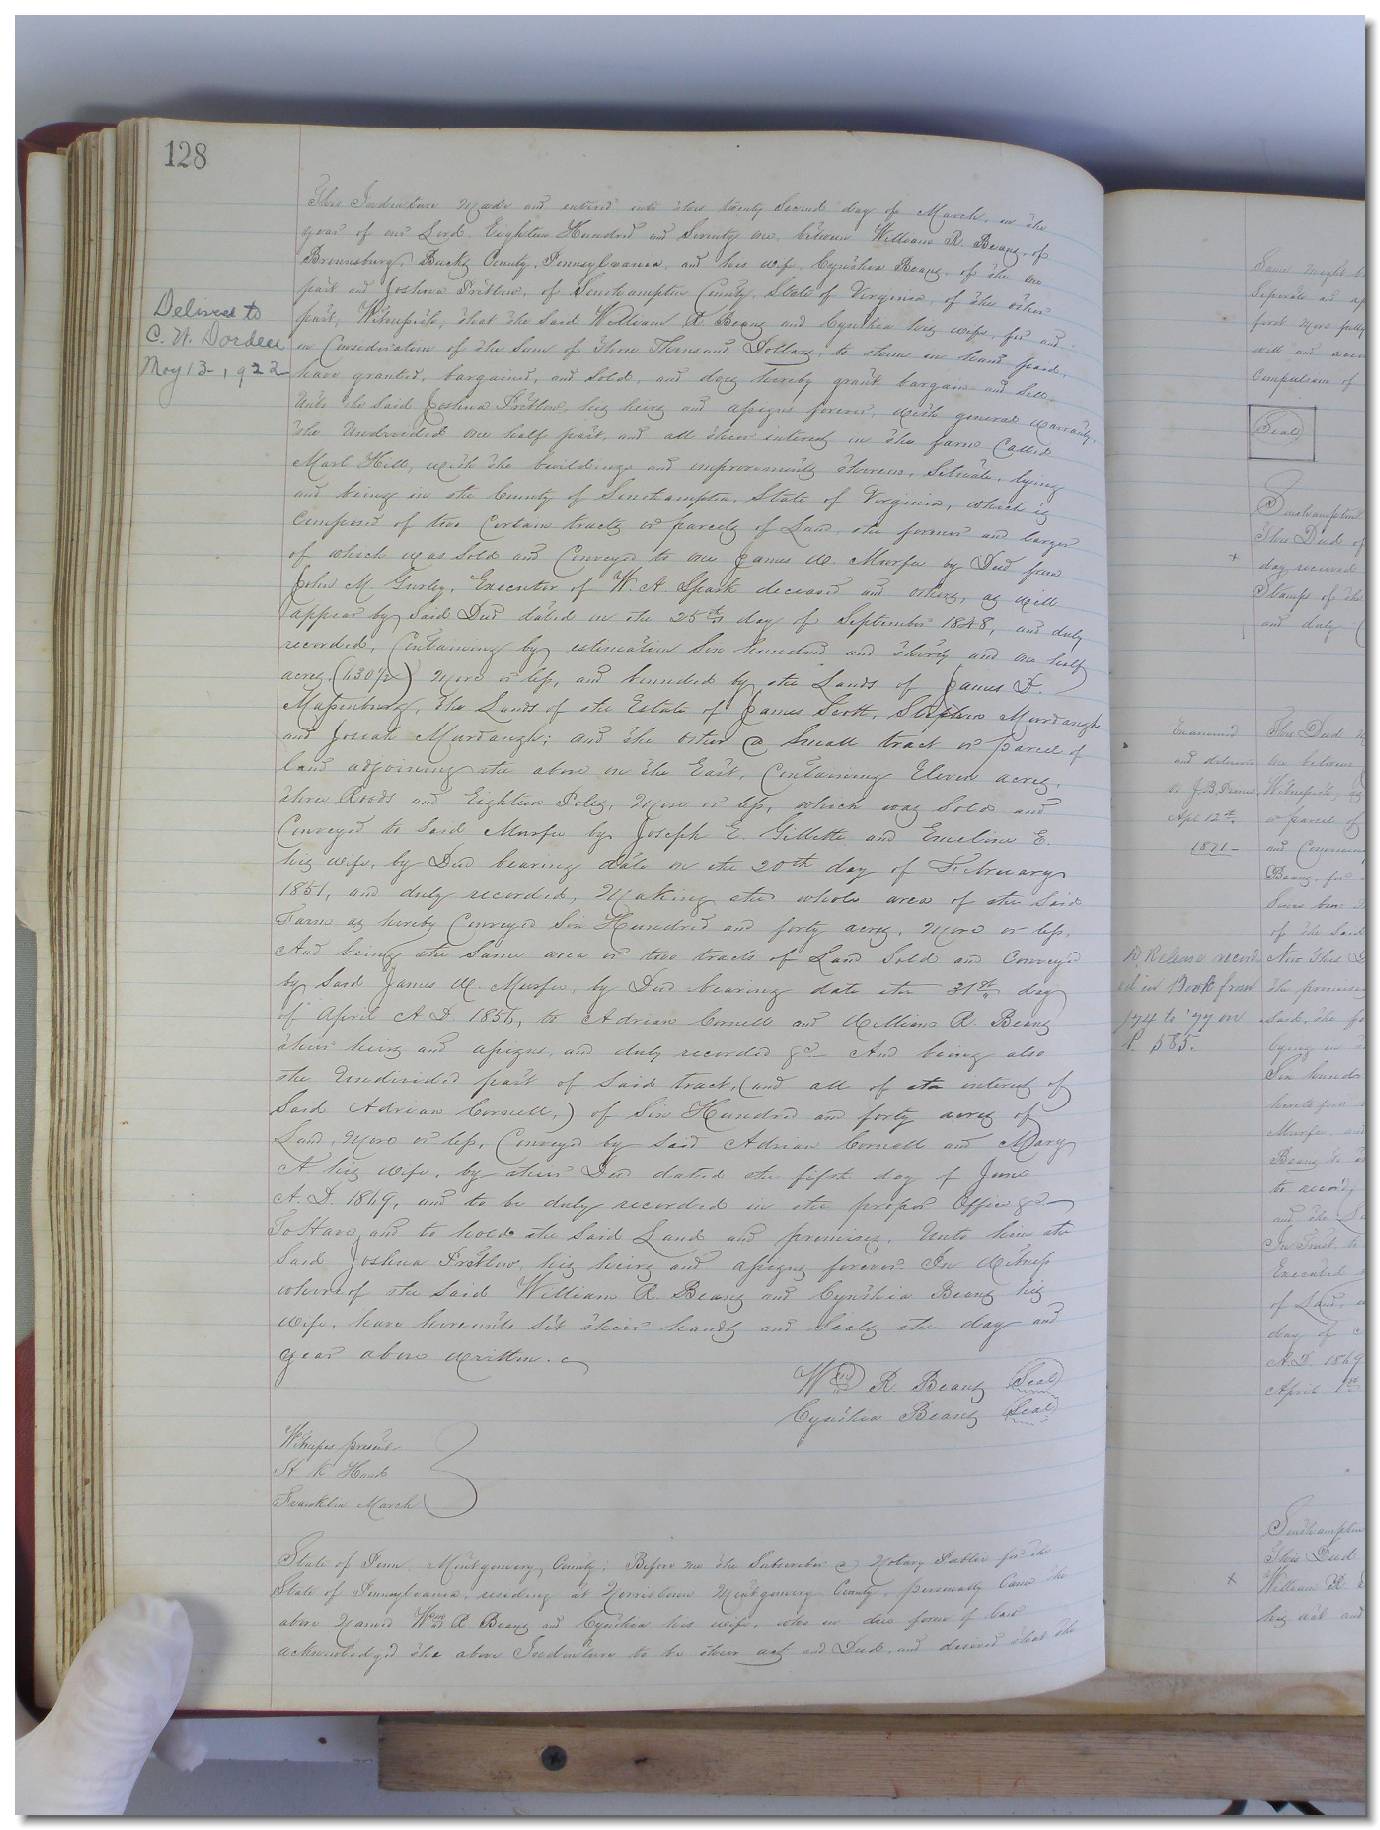 128
Delivered to
C. W. Darden
May 13, 1922
This Indenture made and entered into this twenty second day of March, in the
year of our Lord Eighteen Hundred and Seventy one, between William R. Beans, of
Brownsburg, Bucks County, Pennsylvania, and his wife Cynthia Beans, of the one
part and Joshua Pretlow, of Southampton County, State of Virginia, of the other
part, Witnesseth, that the said William R. Beans and Cynthia his wife, for and
in Consideration of the Sum of Three Thousand Dollars, to them in hand paid,
have granted, bargained, and sold, and does hereby grant bargain and sell
Unto the said Joshua Pretlow, his heirs and assigns forever, with general warranty,
the Undivided one half part, and all their interest in the farm Called
Marl Hill, with the buildings and improvements thereon, Situate, lying
and being in the County of Southampton, State of Virginia, which is
Composed of two Certain tracts or parcels of Land, the former and larger
of which was Sold and Conveyed to one James W. Murfee by Deed from
John M. Gurley, Executor of W. A. Spark deceased and others, as will
appear by Said Deed dated on the 25th day of September 1848, and duly
recorded, Containing by estimation Six hundred and thirty and one half
acres, (630 1/2) more or less, and bounded by the Lands of James D.
Massenburg, the Lands of the Estate of James Scott, Stephen Murdaugh
and Josiah Murdaugh; and the other a Small tract or parcel of
land adjoining the above on the East, Containing Eleven acres,
three Roods and Eighteen Poles, more or less, which was Sold and
Conveyed to Said Murfee by Joseph E. Gillette and Emeline E.
his wife, by Deed bearing date on the 20th day of February
1851, and duly recorded, Making the whole area of the Said
Farm as hereby Conveyed Six Hundred and forty acres, more or less,
And being the Same area or two tracts of Land Sold and Conveyed
by Said James W. Murfee, by Deed bearing date the 31st day
of April A.D. 1856, to Adrian Cornell and William R. Beans
their heirs and assigns, and duly recorded &c And being also
the Undivided part of Said tract, (and all of the interest of
Said Adrian Cornell,) of Six Hundred and forty acres of
Land, more or less, Conveyed by Said Adrian Cornell and Mary
A his wife, by their Deed dated the fifth day of June
A.D. 1869, and to be duly recorded in the proper Office &c
To Have and to hold the Said Land and premises, Unto him the
Said Joshua Pretlow, his heirs and assigns forever. In Witness
whereof the Said William R. Beans and Cynthia Beans his
wife, have hereunto Set their hands and Seals the day and
year above written.
Wm R. Beans (Seal)
Cynthia Beans (Seal)
Witness present
Franklin March
State of Penn, Montgomery County; Before me the Subscriber a Notary Public for the
State of Pennsylvania, residing at Norristown Montgomery County, personally Came the
above Named Wm R Beans and Cynthia his wife, who in due form of law
acknowledged the above Indenture to be their act and Deed, and desired that the
Same might b
Seperate and ap
first more fully
will and acco
Compulsion of
(Seal)
Southampton
This Deed of
day, received
Stamps of the
and duly
Examined
and delivered
to J. B. Prince
Apl 12th
1871
This Deed
one between
Witnesseth,
or parcel of
and Convey
Beans, for
of the Said
A Release record
ed in Book from
174 to 177 on
P. 585.
Now this D
the premises
Said, the
lying in
Six hundr
Murfee, and
Beans
to record,
and the
In Trust to
Executed
of Land,
day of
A.D. 1869
April 1st
Southampton
This Deed
William R.
his act and